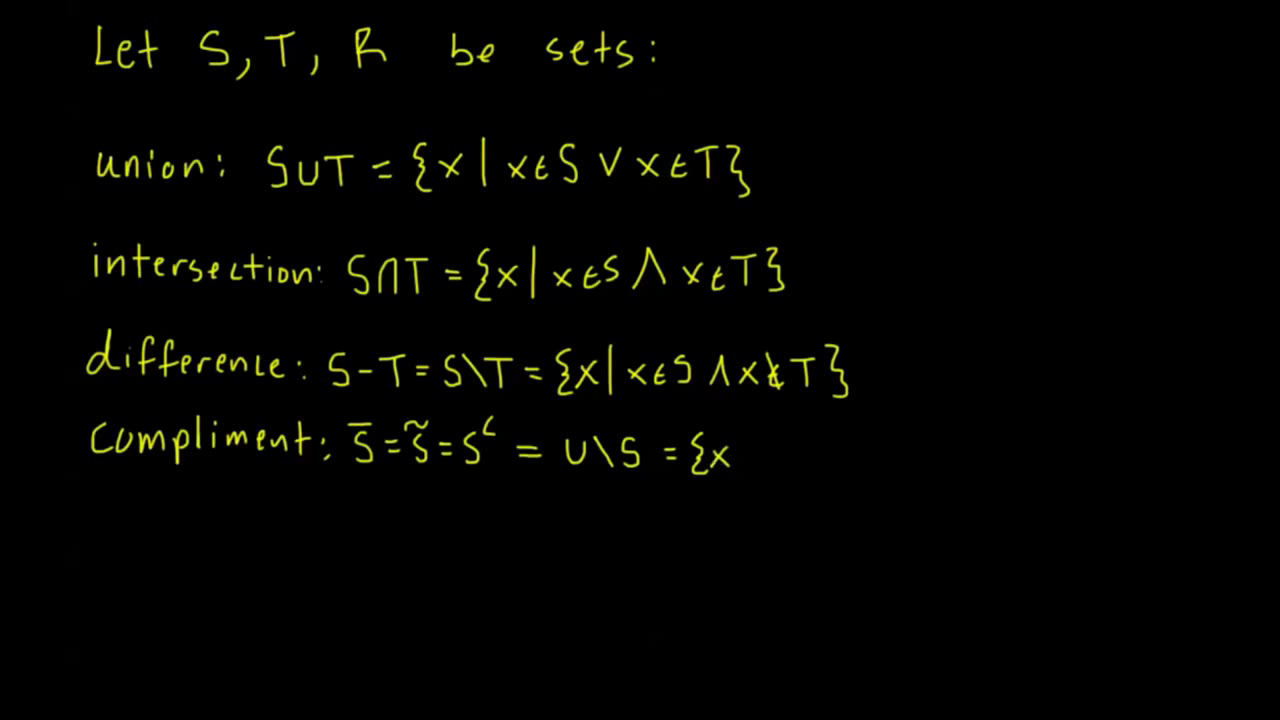 Let S, T, R be sets:
union: S∪T = {x | x∈S ∨ x∈T}
intersection: S∩T = {x | x∈S ∧ x∈T}
difference: S-T = S\T = {x | x∈S ∧ x∉T}
Compliment: S̅ = S̃ = Sᶜ = U\S = {x